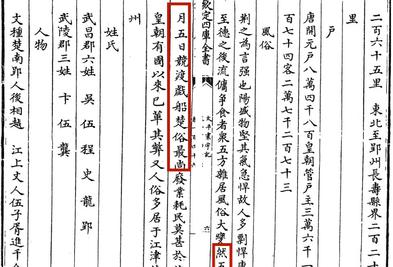 二百六十五里 東北至郢州長壽縣界二百二十
里
户
唐開元户八萬四千八百皇朝管户主三萬六千一
百七十四客二萬七千二百七十三
風俗
荆之為言强也陽盛物堅其氣急悍故人多剽悍
至德之後流傭爭食者衆五方雜居風俗大變然五
欽定四庫全書
太平寰宇記
六
月五日競渡戲船楚俗最尚廢業耗民莫甚於
皇朝有國以來已革其弊又人多居于江津
州
姓氏
武昌郡六姓 吴 伍 程 史 龍 郢
武陵郡三姓 卞 伍 龔
人物
文種楚南郢人後相越 江上丈人伍子胥進千金